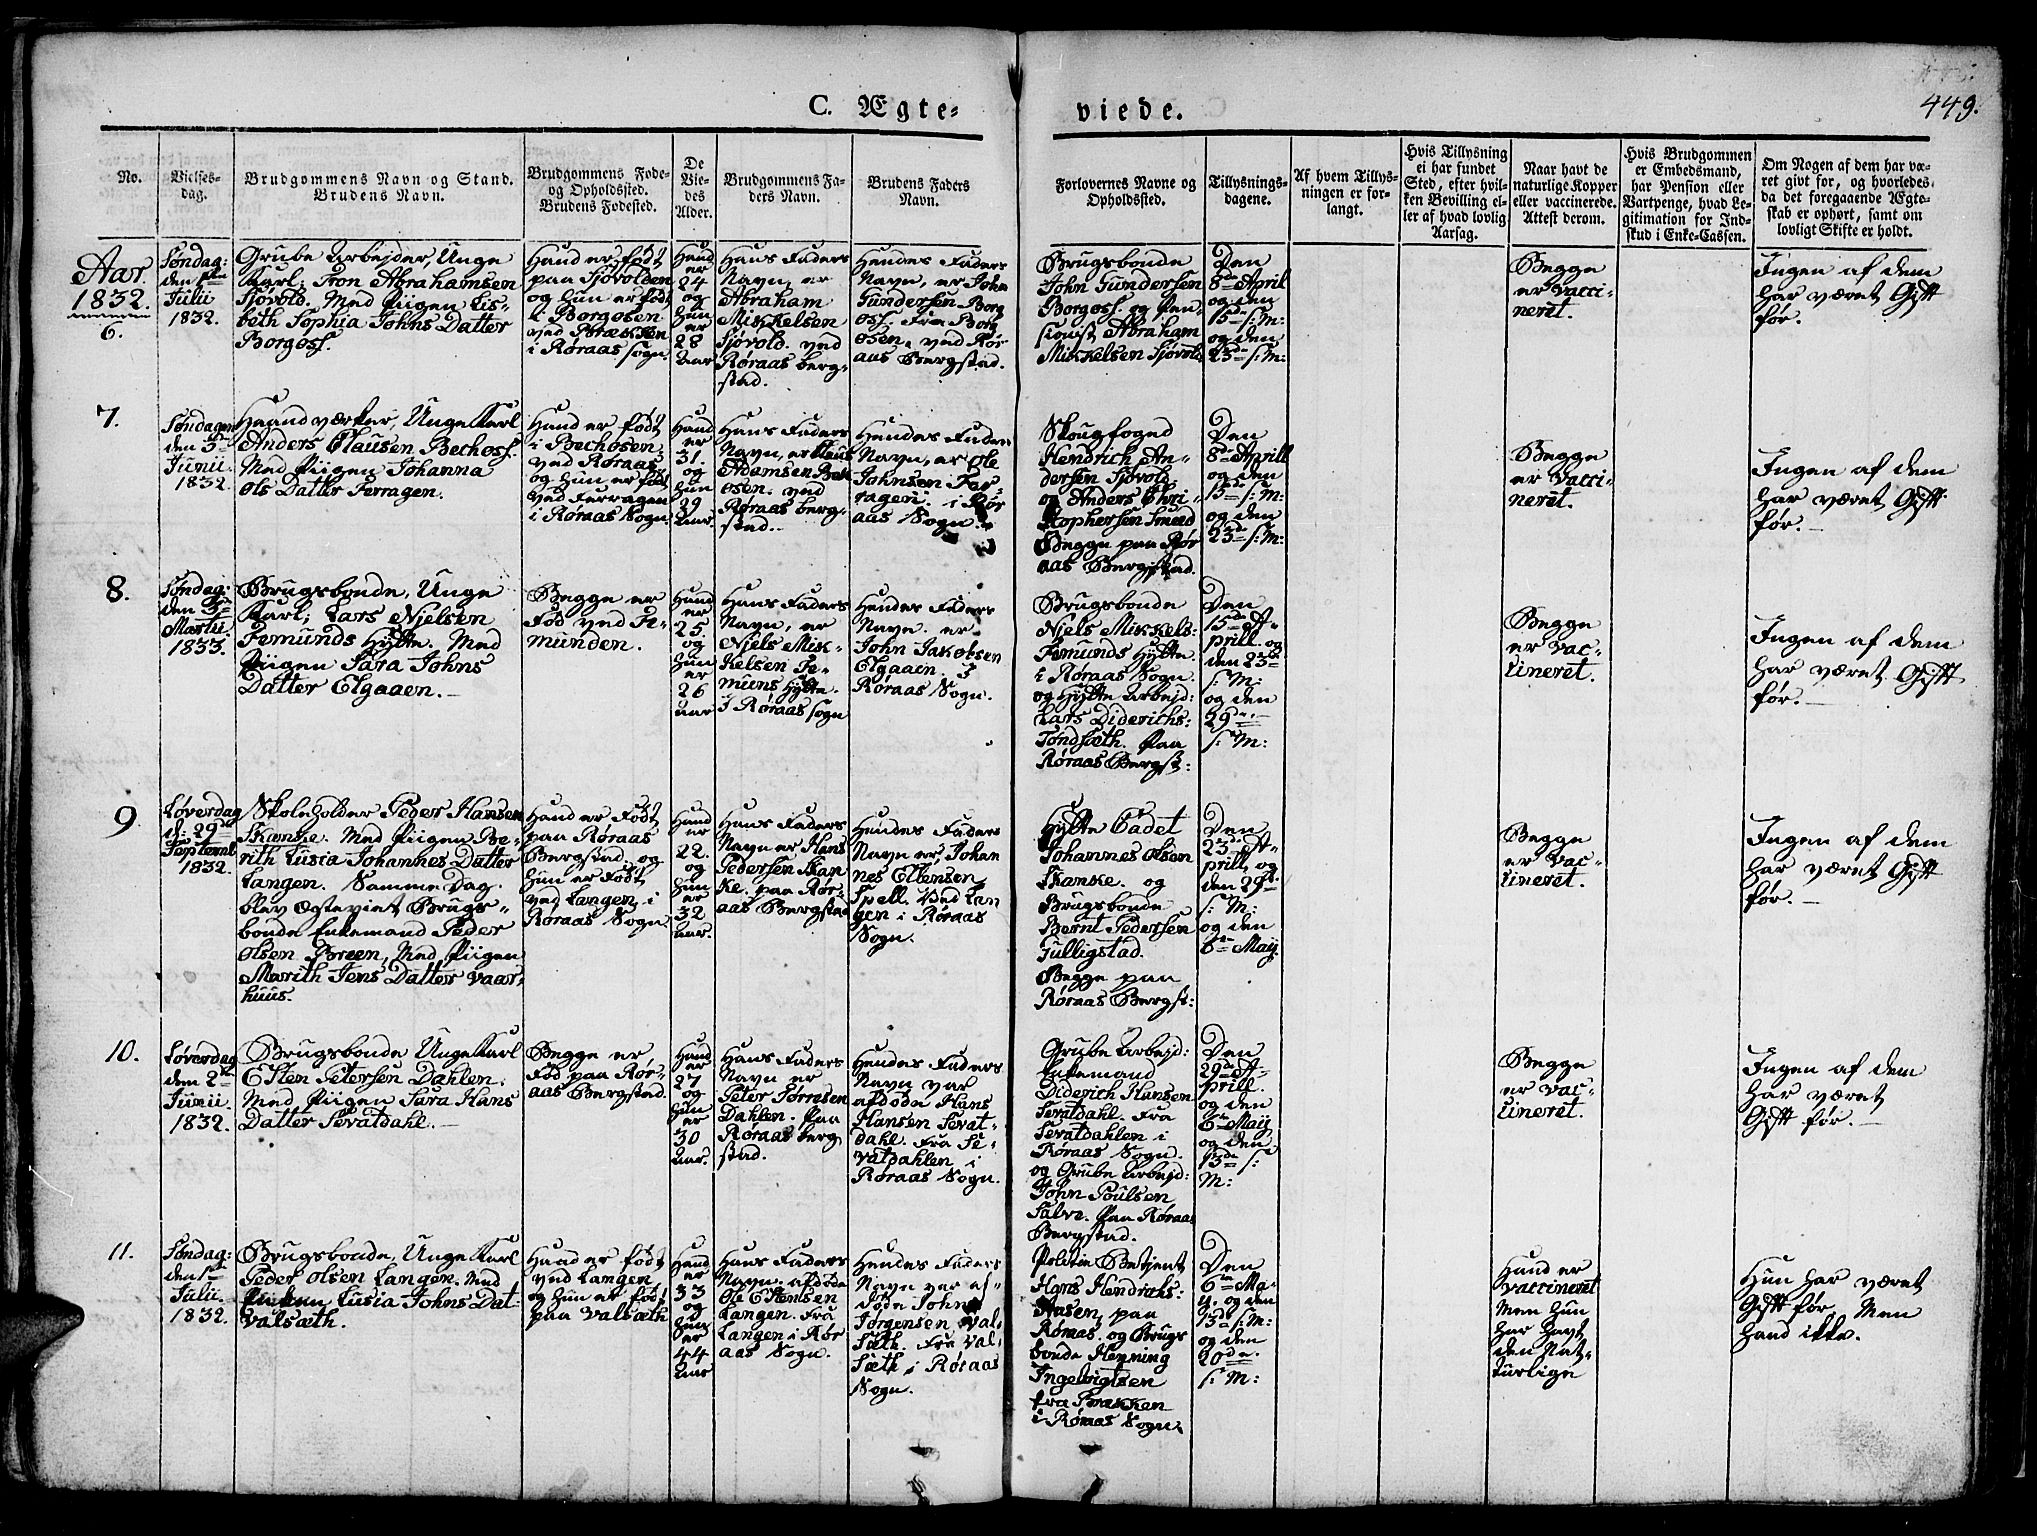 C. Ægte-
viede.
449.
No.
Vielses-
dag.
Brudgommens Navn og Stand.
Brudens Navn.
Brudgommens Føde-
og Opholdssted.
Brudens Fødested.
De
Vie-
des
Alder.
Brudgommens Fa-
ders Navn.
Brudens Faders
Navn.
Forlovernes Navne og
Opholdssted.
Tillysnings-
dagene.
Af hvem Tillys-
ningen er for-
langt.
Hvis Tillysning
ei har fundet
Sted, efter hvil-
ken Bevilling el-
ler af hvad lovlig
Aarsag.
Naar havt de
naturlige Kopper
eller vaccinerede.
Attest derom.
Hvis Brudgommen
er Embedsmand,
har Pension eller
Vartpenge, hvad Le-
gitimation for Ind-
skud i Enke-Cassen.
Om Nogen af dem har væ-
ret givt før, og hvorledes
da det foregaaende Ægte-
skab er ophørt, samt om
lovligt Skifte er holdt.
Aar
1832.
6.
Søndag:
den
Julii
1832.
Grube Arbejder, Unge
Karl, Iron Abrahamsen
Sjøvold. Med Piigen Lis-
beth Sophia Johns Datter
Borgos.
Hand er født
paa Sjøvolden
og hun er født
i Borgosen
ved Brækken
i Røraas Sogn.
Hand
er
24
og
hun
er
28
Aar
Hans Faders
Navn, er
Abraham
Mikkelsen
Sjøvold. ved
Røraas berg-
stad.
Hendes Faders
Navn, er John
Gundersen Borg
os. fra Borg
osen, ved Rør
aas Bergstad.
Brugsbonde
John Gundersen
Borgos. og Pen-
sionist Abraham
Mikkelsen Sjøvold
Den
8de April
og den
15de s: M:
og den
23de s: M:
Begge
er vacci-
neret.
Ingen af dem
har været Gift
før.
7.
Søndagen
den 3de
Junii
1832.
Haandværker, Unge Karl
Anders Clausen Bechos.
Med Piigen Johanna
Ols Datter Ferragen.
Hand er født
i Bechosen
ved Røraas
og hun er født
ved Ferragen
i Røraas Sogn.
Hand
er
31
og
hun
29
Aar.
Hans Faders
Navn, er Claus
Adamsen Bek
osen. ved
Røraas berg-
stad.
Hendes Faders
Navn, er Ole
Johnsen Fer-
ragen. i Rør
aas Sogn.
Skougfoged
Hendrich An-
dersen Sjøvold.
og Anders Chri-
stophersen Smed
Begge paa Rør
aas Bergstad.
Den
8de Aprill
og den
15de s: M:
og den
23de s: M:
Begge
er Vacci-
neret.
Ingen af dem
har været Gift
før.
8.
Søndag:
den 3de
Martii
1833.
Brugsbonde, Unge
Karl, Lars Njelsen
Femunds hytte. Med
Piigen Sara Johns
Datter Elgaaen.
Begge er
Fød ved Fe-
munden.
Hand
er
25
og
hun
er
26
aar
Hans Faders
Navn, er
Njels Mik-
kelsen Fe-
muens hytte.
i Røraas sogn
Hendes Faders
Navn er
John Jakobsen
Elgaaen i
Røraas Sogn.
Brugsbonde
Njels Mikkels:
Femunds hytte
i Røraas Sogn
og hytte Arbejd:
Lars Diderichs:
Tøndsæth. paa
Røraas Bergst:
Den
15de A-
prill. og
den 23de
s: M:
og den
29de
s: M:
Begge
er Vac-
cineret.
Ingen af dem
har været Gift
før.
9
Løverdag
d: 29de
Septemb
1832.
Skoleholder Peder Hansen
Skanke. Med Piigen Be-
rith Lusia Johannes Datter
Langen. Samme Dag.
blev Ægteviet Brugs-
bonde Enkemand Peder
Olsen Breen, Med Piigen
Marith Jens Datter Vaar-
huus.
Hand er Født
paa Røraas
Bergstad, og
hun er Født
ved Langen i
Røraas Sogn.
Hand
er
22.
og
hun
er
32
Aar.
Hans Faders
Navn er Hans
Pedersen Skan
ke. paa Rør-
aas Bergstad
Hendes Faders
Navn er Johan
nes Ellensen
Spell. Ved Lan
gen i Røraas
Sogn.
Hytte Cadet
Johannes Olsen
Skanke. og
Brugsbonde
Bernt Pedersen
Gulligstad.
Begge paa
Røraas Bergst:
Den
23de A-
prill, og
den 29de
s: M:
og den
6te Maij
Begge
er Vac-
cineret.
Ingen af dem
har været Gift
før.
10.
Løverdag
den 2de
Junii
1832.
Brugsbonde Unge Karl
Esten Petersen Dahlen.
Med Piigen Sara Hans
Datter Sevatdahl.
Begge er
Fød paa Rør-
aas Bergstad.
Hand
er
27
og
hun
er
30
Aar.
Hans Faders
Navn er
Peter Torresen
Dahlen. Paa
Røraas berg
stad.
Hendes Faders
Navn var
afdøde Hans
Hansen Sevat-
dahl. Fra Se-
vatdahlen i
Røraas Sogn.
Grube Arbejd:
Enkemand
Diderich Hansen
Sevatdahl. Fra
Sevatdahlen i
Røraas Sogn.
og Grube Arbejd:
John Poulsen
Salvr. Paa Røraas
Bergstad.
Den
29de A-
prill.
og den
6te Maij
og den
13de s:
M:
Begge
er Vac-
cineret.
Ingen af dem
har været
Gift før.
11.
Søndag:
den 1ste
Julii
1832.
Brugsbonde, Unge Karl
Peder Olsen Langen. Med
Lusia Johns Dat:
Valsæth.
Hand er født
ved Langen
og hun er født
paa Valsæth
Hand
er
33
og
hun
er
44
Aar
Hans Faders
Navn. afdøde
Ole Estensen
Langen. Fra
Langen i Rør
aas Sogn.
Hendes Faders
Navn var af-
døde John
Jørgensen Val-
Sæth. Fra Val-
Sæth i Røraas
Sogn.
Politie Betjent
Hans Hendrichs:
Aasen, paa
Røraas. og Brugs
bonde Henning
Ingebrigtsen
fra Brækken
i Røraas Sogn.
Den
6te Ma-
ij. og den
13de s: M:
og den
20de
s: M:
Hand er
vaccineret
Men hun
har havt
den Nat-
turlige
Hun har været
Gift før, Men
hand ikke.